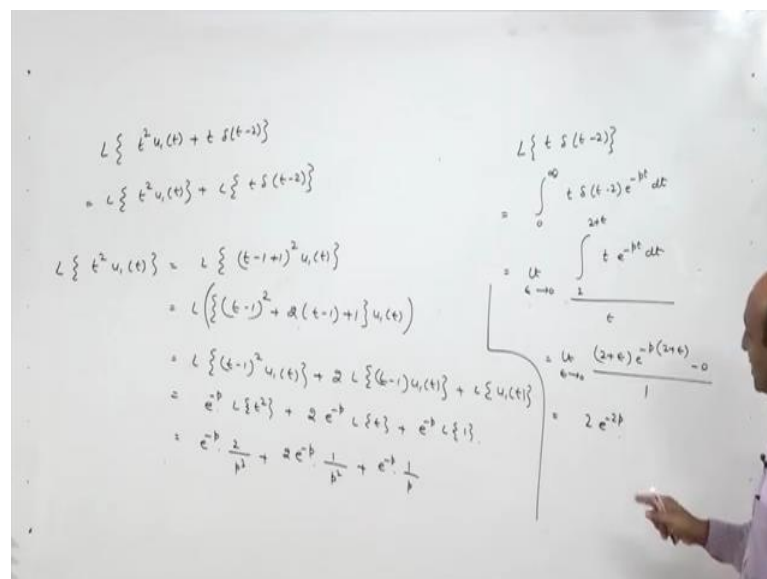 L{ t² u₁(t) + t δ(t-2)}
= L{ t² u₁(t)} + L{ t δ(t-2)}
L{ t² u₁(t)} = L{ (t-1+1)² u₁(t)}
= L({(t-1)² + 2(t-1)+1} u₁(t))
= L{(t-1)² u₁(t)} + 2 L{(t-1) u₁(t)} + L{u₁(t)}
= e^{-p} L{t²} + 2 e^{-p} L{t} + e^{-p} L{1}.
= e^{-p} · 2/p³ + 2e^{-p} · 1/p² + e^{-p} · 1/p
L{ t δ(t-2)}
= ∫₀^∞ t δ(t-2) e^{-pt} dt
= Lt_{ϵ→0} ∫₂^{2+ϵ} t e^{-pt} dt / ϵ
= Lt_{ϵ→0} (2+ϵ) e^{-p(2+ϵ)} - 0 / 1
= 2 e^{-2p}.